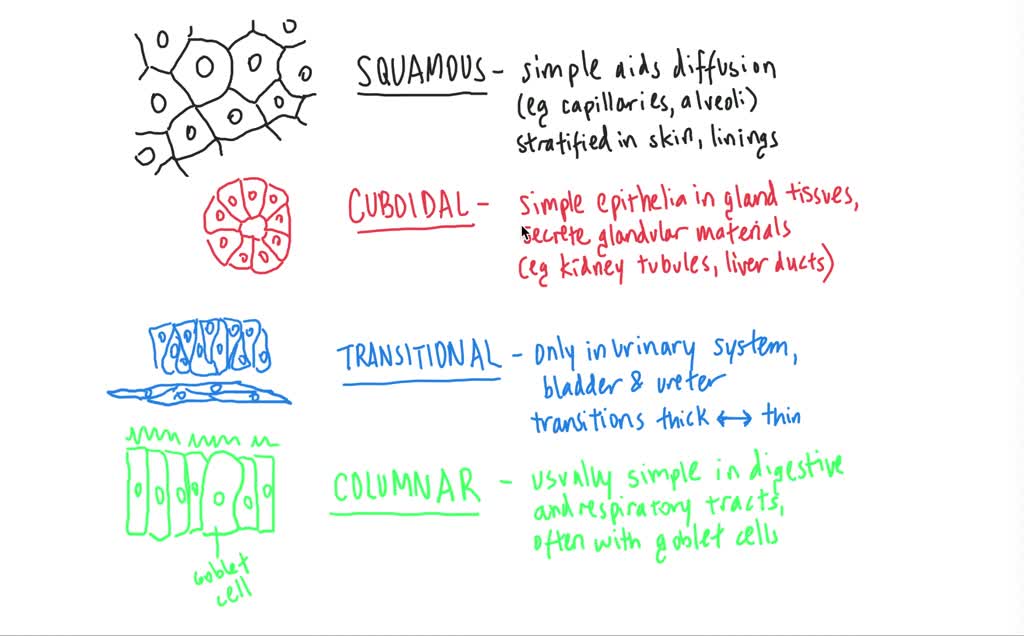 SQUAMOUS - simple aids diffusion
(eg capillaries, alveoli)
stratified in skin, linings
CUBOIDAL - simple epithelia in gland tissues,
secrete glandular materials
(eg kidney tubules, liver ducts)
TRANSITIONAL - only in urinary system,
bladder & ureter
transitions thick ↔ thin
COLUMNAR - usually simple in digestive
and respiratory tracts,
often with goblet cells
Goblet
cell